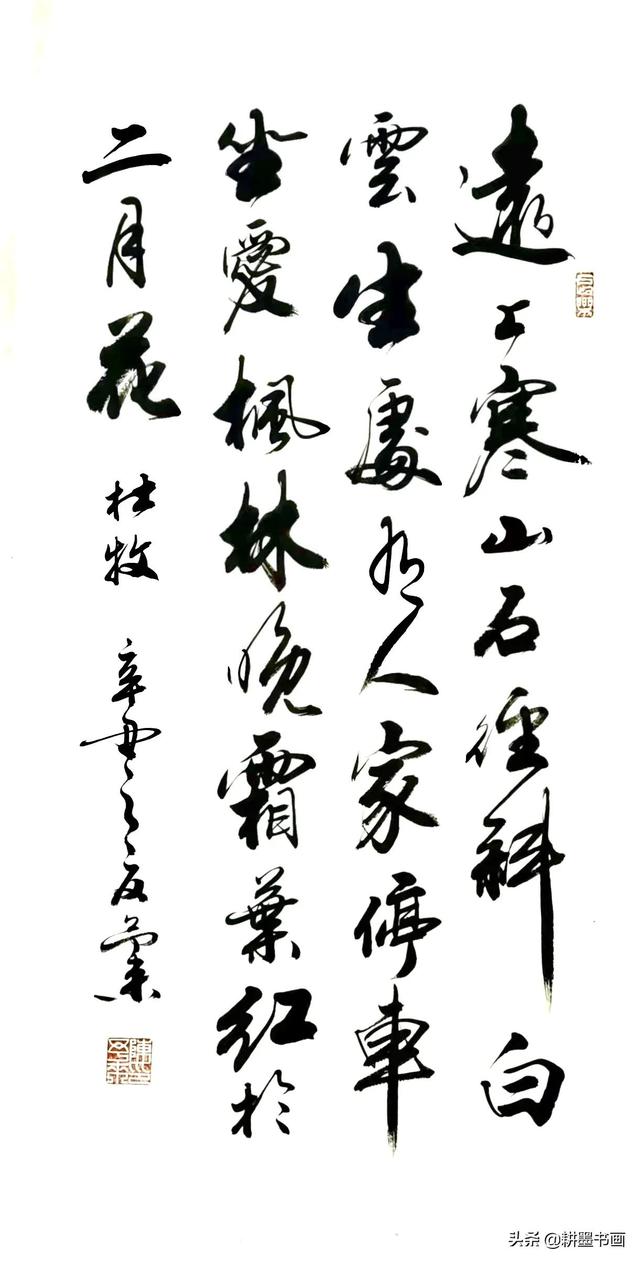 遠上寒山石徑斜白
雲生處有人家停車
坐愛楓林晚霜葉紅於
二月花 杜牧 辛丑之夏
头条 @耕墨书画